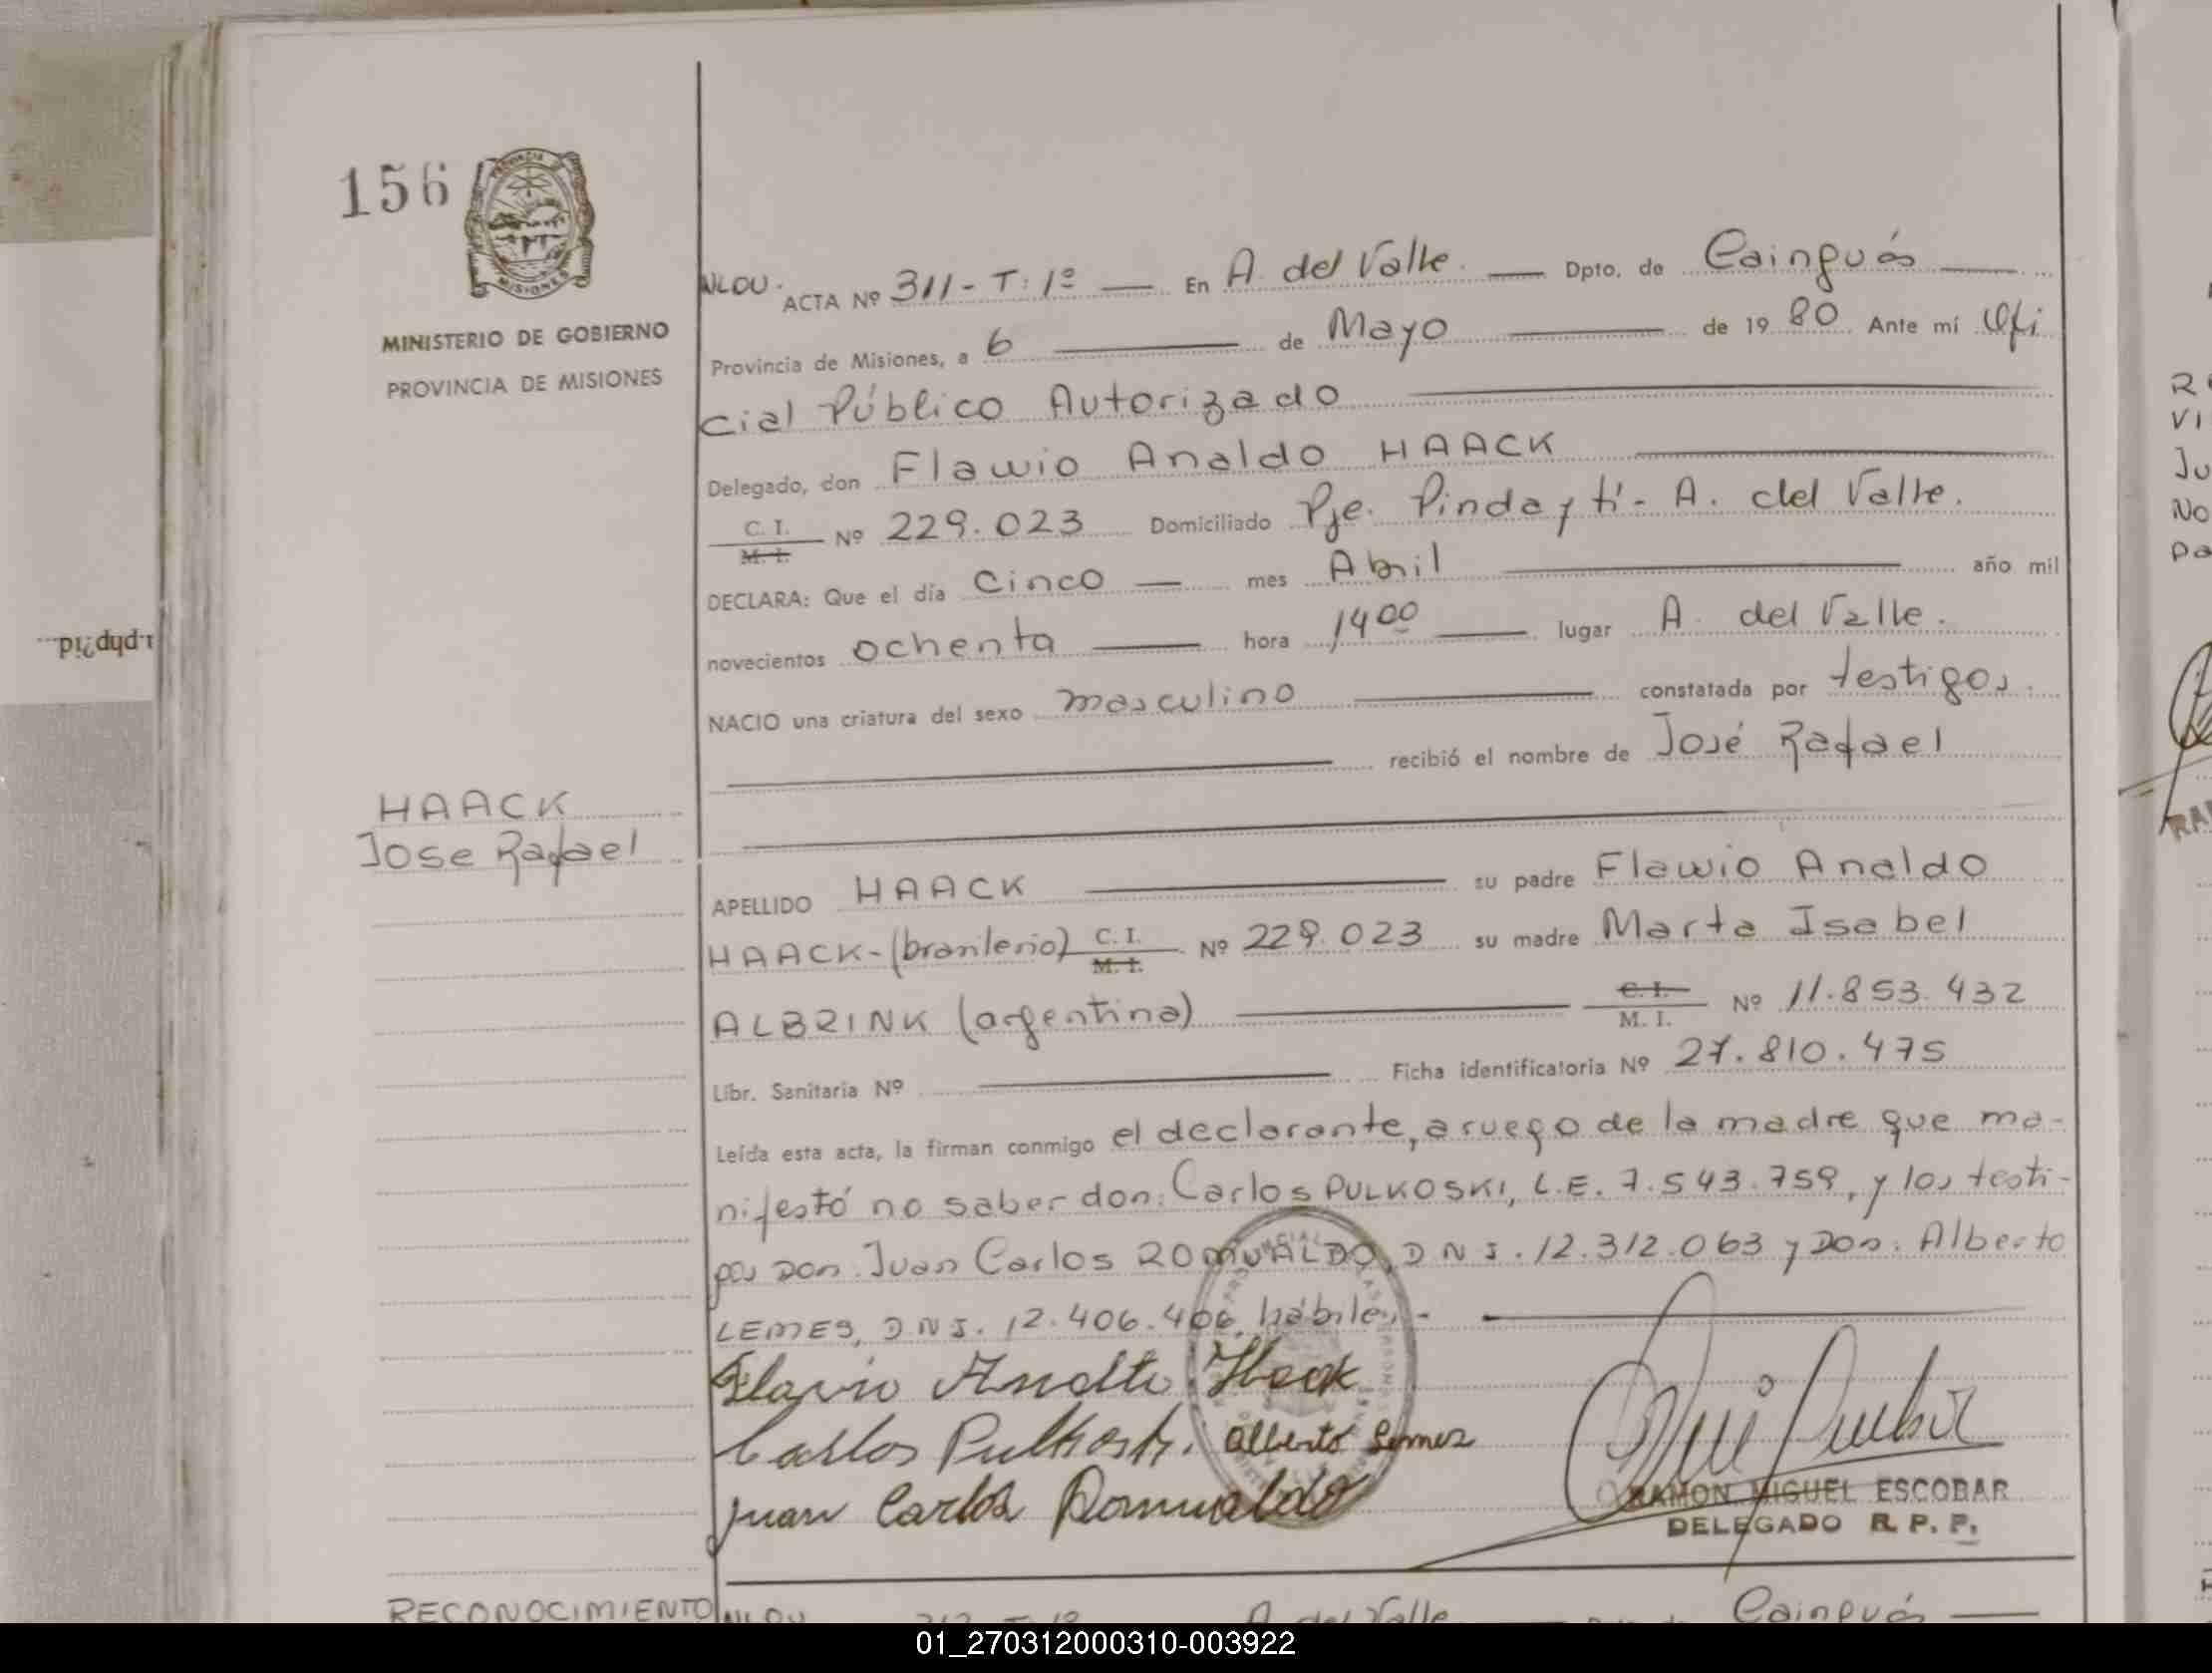 156
PROVINCIA DE MISIONES
MINISTERIO DE GOBIERNO
PROVINCIA DE MISIONES
NLOU. ACTA Nº 311 - T: 1º — En A. del Valle. — Dpto. de Cainguás —
Provincia de Misiones, a 6 — de Mayo — de 19 80 Ante mí Ofi
cial Público Autorizado
Delegado, don Flawio Analdo HAACK
C. I. / M. I. Nº 229.023 Domiciliado Pje. Pindaytí - A. del Valle.
DECLARA: Que el día Cinco — mes Abril — año mil
novecientos ochenta — hora 14 00 — lugar A. del Valle.
NACIO una criatura del sexo masculino — constatada por testigos.
— recibió el nombre de José Rafael
HAACK
Jose Rafael
APELLIDO HAACK — su padre Flawio Analdo
HAACK - (brasilerio) C. I. / M. I. Nº 229.023 su madre Marta Isabel
ALBRINK (argentina) — C. I. / M. I. Nº 11.853.432
Libr. Sanitaria Nº — Ficha identificatoria Nº 27.810.475
Leída esta acta, la firman conmigo el declarante, a ruego de la madre que ma-
nifestó no saber don: Carlos PULKOSKI, L.E. 7.543.759, y los testi-
gos Don. Juan Carlos ROMUALDO, D N I. 12.312.063 y Don. Alberto
LEMES, D N I. 12.406.406, hábiles. -
Flavio Analto Haak
Carlos Pulkoski. Alberto Lemes
Juan Carlos Romualdo
RAMON MIGUEL ESCOBAR
DELEGADO R. P. P.
RECONOCIMIENTO NLOU 312 - T: 1º A. del Valle — Cainguás —
01_270312000310-003922